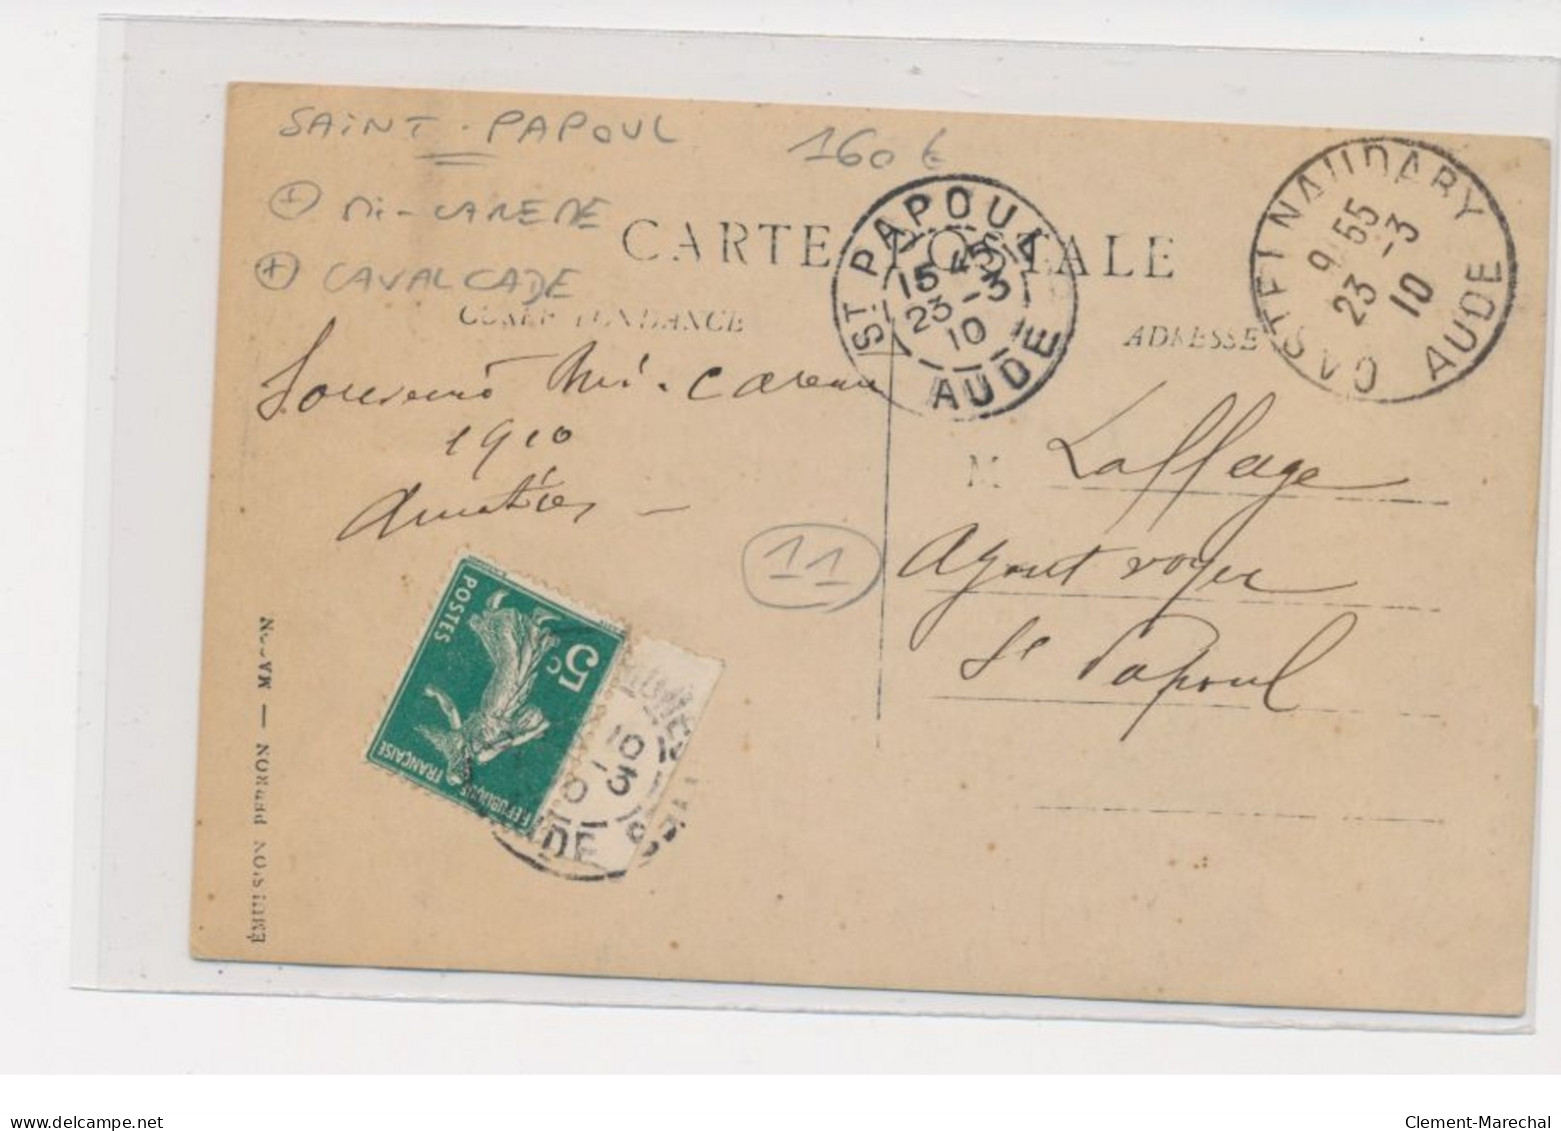 SAINT-PAPOUL
160 €
+ MI-CAREME
+ CAVALCADE
CARTE POSTALE
CORRESPONDANCE
ADRESSE
ST PAPOUL
15 45
23-3
10
AUDE
CASTELNAUDARY
9 55
23 -3
10
AUDE
Souvenir Mi-Careme
1910
Amitiés
M Laffage
Agent voyer
St Papoul
11
5c
POSTES
REPUBLIQUE FRANÇAISE
10
-3
DE
ÉMULSION PERRON — MACON
delcampe.net
Clement-Marechal